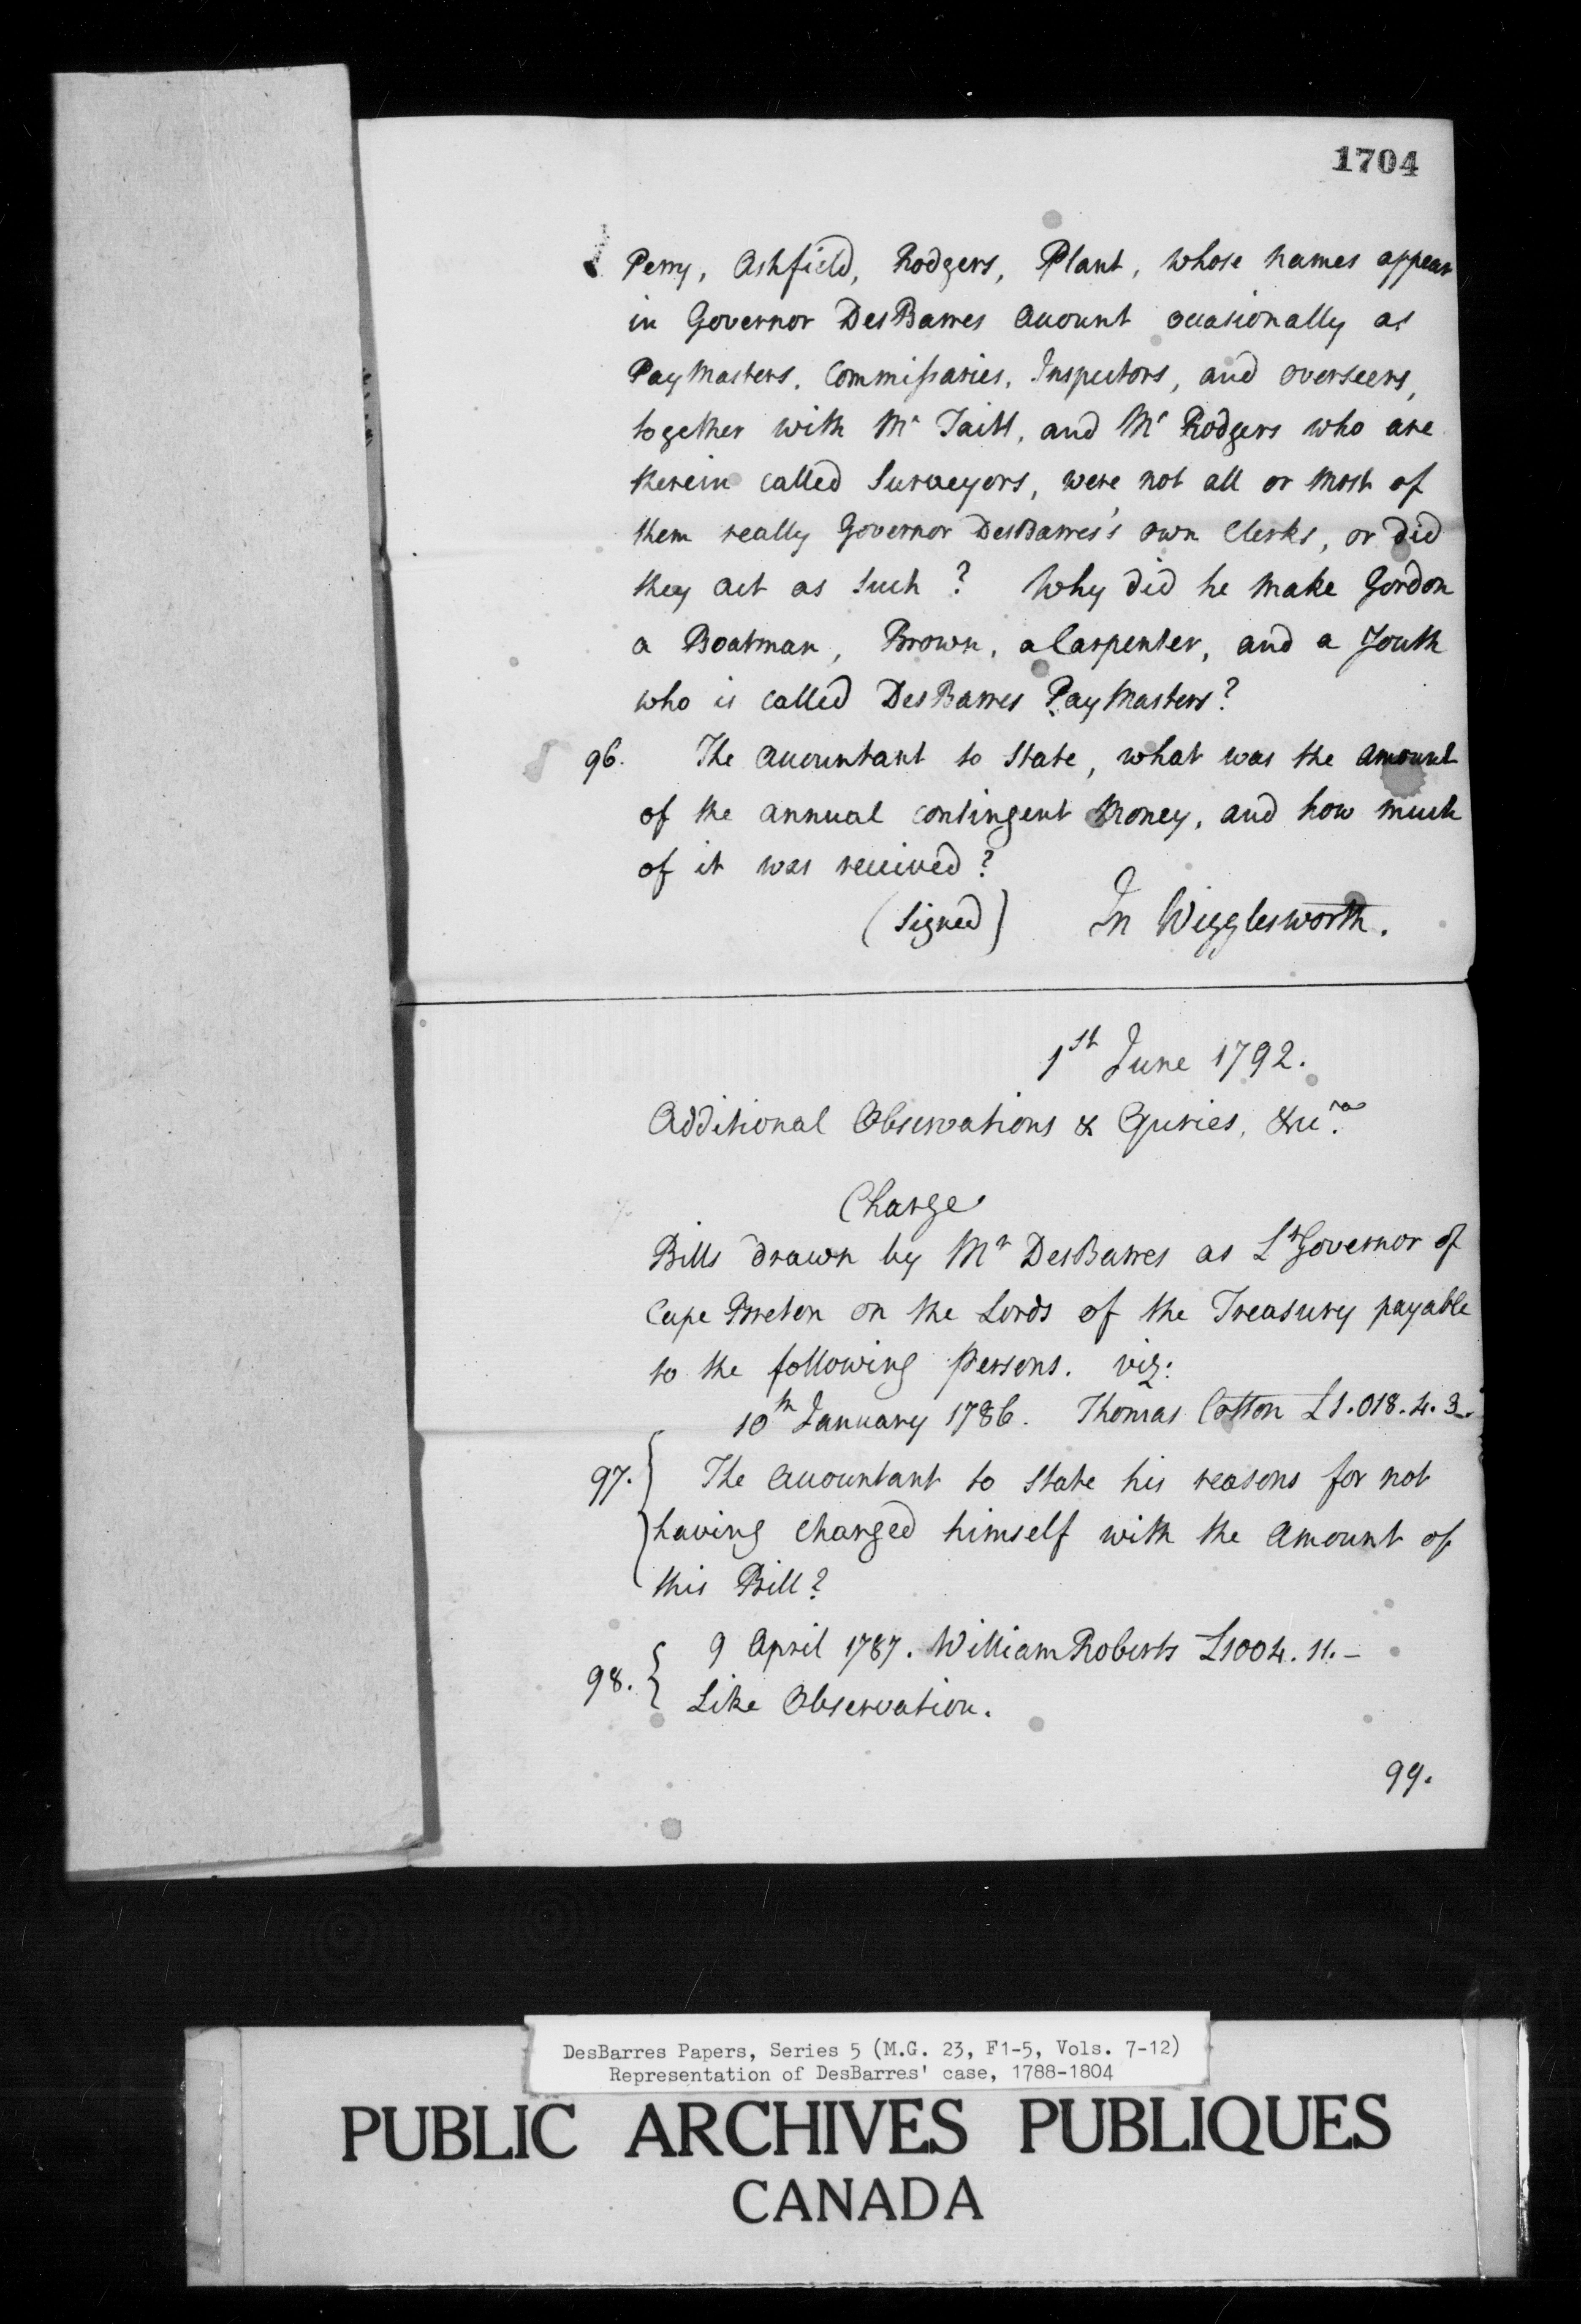 1704
Perry, Ashfield, Rodgers, Plant, whose names appear
in Governor DesBarres Account occasionally as
PayMasters, Commissaries, Inspectors, and overseers,
together with Mr Taitt, and Mr Rodgers who are
therein called Surveyors, were not all or most of
them really Governor DesBarres's own Clerks, or did
they act as such? Why did he make Gordon
a Boatman, Brown, a Carpenter, and a Youth
who is called DesBarres PayMasters?
96. The Accountant to State, what was the amount
of the annual contingent Money, and how much
of it was received?
(signed) Jn Wigglesworth.
1st June 1792.
Additional Observations & Queries, &ca.
Charge
Bills drawn by Mr DesBarres as Lt Governor of
Cape Breton on the Lords of the Treasury payable
to the following Persons. viz:
10th January 1786. Thomas Cotton £1.018.4.3.
97. The Accountant to State his reasons for not
having charged himself with the Amount of
this Bill?
9 April 1787. William Roberts £1004.11.-
98. Like Observation.
99.
DesBarres Papers, Series 5 (M.G. 23, F1-5, Vols. 7-12)
Representation of DesBarres' case, 1788-1804
PUBLIC ARCHIVES PUBLIQUES
CANADA